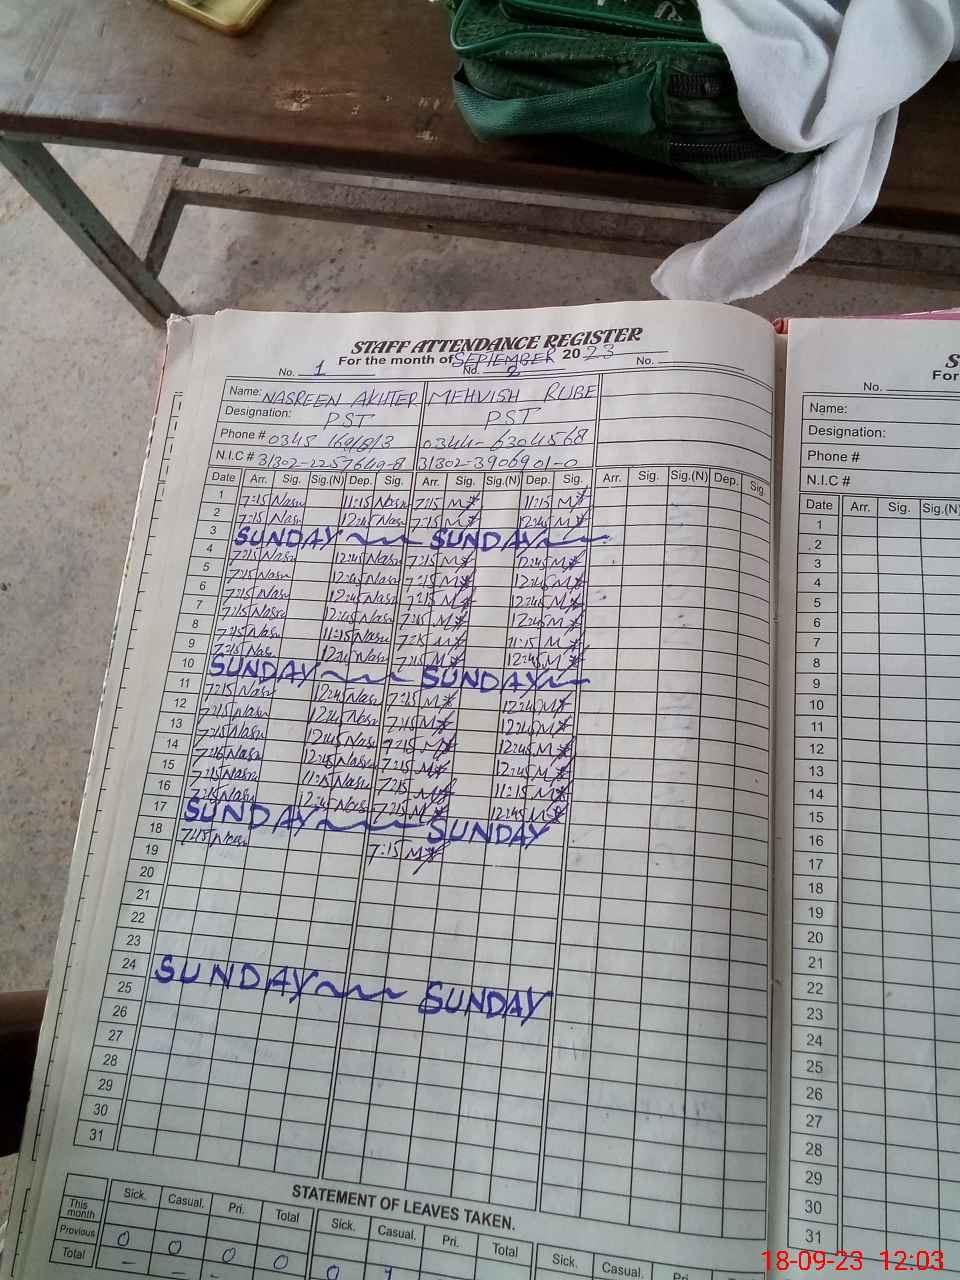 STAFF ATTENDANCE REGISTER
For the month of SEPTEMBER 2023
No. 1 No. 2 No.
Name: NASREEN AKHTER MEHVISH RUBE
Designation: PST PST
Phone # 0345 0344-6304568
N.I.C # 31302-2257640-8 31302-3906901-0
Date Arr. Sig. Sig.(N) Dep. Sig. Arr. Sig. Sig.(N) Dep. Sig. Arr. Sig. Sig.(N) Dep. Sig.
1 7:15 Nasn 11:15 Nasn 7:15 M 11:15 M
2 7:15 Nasn 12:45 Nasn 7:15 M 12:45 M
3 SUNDAY SUNDAY
4 7:15 Nasn 12:45 Nasn 7:15 M 12:45 M
5 7:15 Nasn 12:45 Nasn 7:15 M 12:45 M
6 7:15 Nasn 12:45 Nasn 7:15 M 12:45 M
7 7:15 Nasn 12:45 Nasn 7:15 M 12:45 M
8 7:15 Nasn 11:15 Nasn 7:15 M 11:15 M
9 7:15 Nasn 12:45 Nasn 7:15 M 12:45 M
10 SUNDAY SUNDAY
11 7:15 Nasn 12:45 Nasn 7:15 M 12:45 M
12 7:15 Nasn 12:45 Nasn 7:15 M 12:45 M
13 7:15 Nasn 12:45 Nasn 7:15 M 12:45 M
14 7:15 Nasn 12:45 Nasn 7:15 M 12:45 M
15 7:15 Nasn 11:15 Nasn 7:15 M 11:15 M
16 7:15 Nasn 12:45 Nasn 7:15 M 12:45 M
17 SUNDAY SUNDAY
18 7:15 Nasn 7:15 M
19
20
21
22
23
24 SUNDAY SUNDAY
25
26
27
28
29
30
31
STATEMENT OF LEAVES TAKEN.
Sick. Casual. Pri. Total Sick. Casual. Pri. Total Sick. Casual. Pri.
This month
Previous 0 0 0 0 0 1
Total
No.
Name:
Designation:
Phone #
N.I.C #
Date Arr. Sig. Sig.(N)
1
2
3
4
5
6
7
8
9
10
11
12
13
14
15
16
17
18
19
20
21
22
23
24
25
26
27
28
29
30
31
18-09-23 12:03